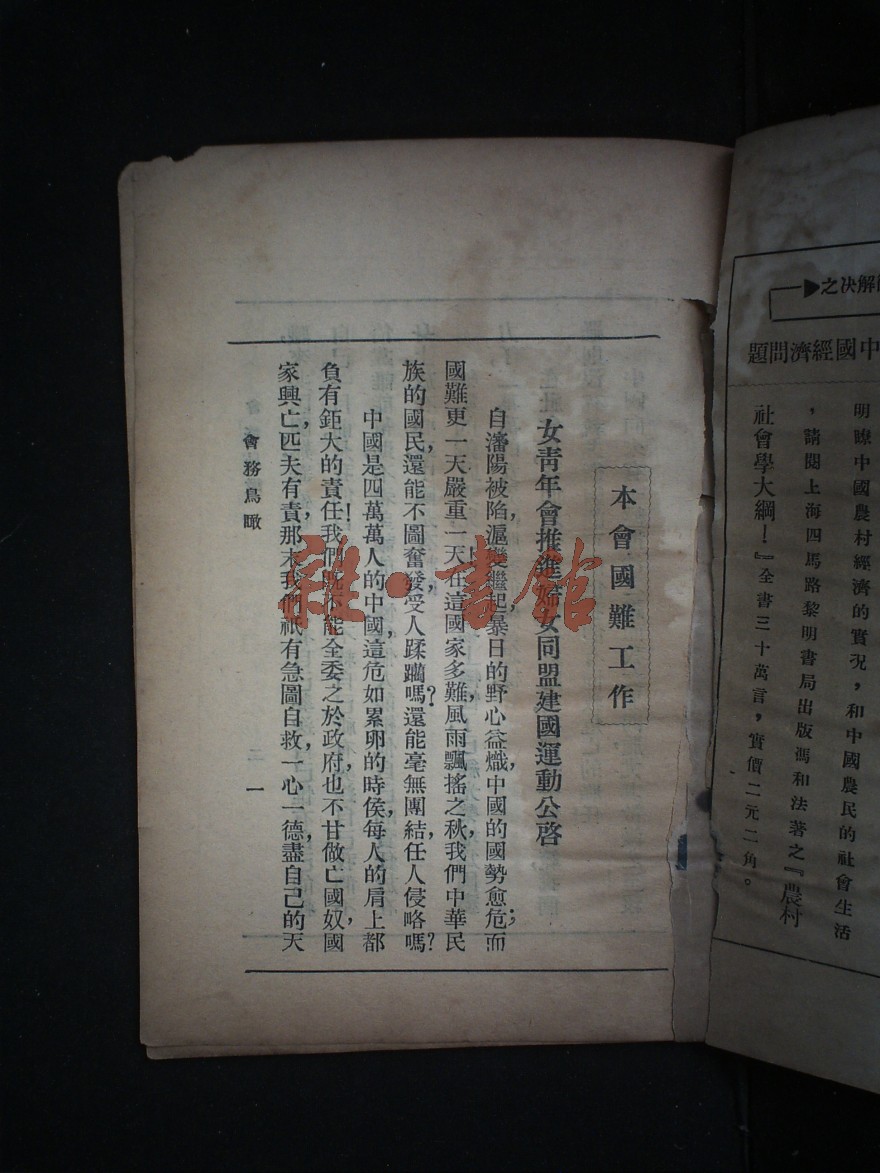 能解決之
中國經濟問題
明瞭中國農村經濟的實況，和中國農民的社會生活
，請閱上海四馬路黎明書局出版馮和法著之『農村
社會學大綱！』全書三十萬言，實價二元二角。
本會國難工作
女靑年會推進婦女同盟建國運動公啓
自瀋陽被陷，滬變繼起，暴日的野心益熾，中國的國勢愈危；而
國難更一天嚴重一天在這國家多難，風雨飄搖之秋，我們中華民
族的國民，還能不圖奮發，受人蹂躪嗎？還能毫無團結，任人侵略嗎？
中國是四萬萬人的中國，這危如累卵的時侯，每人的肩上都
負有鉅大的責任！我們旣不能全委之於政府，也不甘做亡國奴，國
家興亡，匹夫有責，那末我們祇有急圖自救，一心一德，盡自己的天
會務鳥瞰
二一
雜·書館